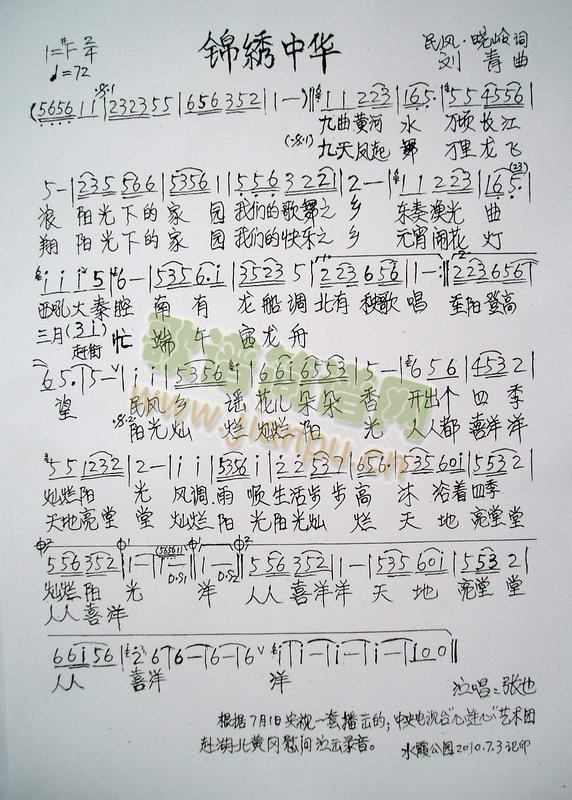 锦绣中华
1=#F 2/4
♩=72
民风·晓岭词
刘青曲
(5656 1 1 | 232355 | 656352 | 1 — ) | 1 1 223 | 165· | 5 5 4556 |
九曲黄河 水 万顷长江
九天凤起 舞 万里龙飞
5 — | 235 566 | 5356 1 | 556 3221 | 2 — | 1 1 223 | 165· |
浪 阳光下的家 园 我们的歌舞之 乡 东秦渔光 曲
翔 阳光下的家 园 我们的快乐之 乡 元宵闹花 灯
西吼大秦腔 南 有 龙船调 北有 秧歌 唱 重阳登高
三月(3 i)赶街 忙 端 午 赛龙 舟
望 民风乡 谣 花儿朵朵 香 开出个 四 季
阳光灿 烂 灿烂阳 光 人人都 喜洋 洋
5 5 1232 | 2 — | i i | 5356 i | 2 2 537 | 656· | 535 60i | 5532 |
灿烂阳 光 风调雨 顺 生活步步 高 沐 浴着 四季
天地亮堂 堂 灿烂阳 光 阳光灿 烂 天 地 亮堂 堂
556352 | 1 — | 1 — | 1 — | 556 352 | 1 — | 535 60i | 553 2 |
灿烂阳 光 洋 人人喜洋洋 天 地 亮堂 堂
人人喜洋
66i56 | 2 6 | 6 — | 6 — | 6 | i — | i — | i — | i 0 0 ‖
人人 喜洋 洋
演唱:张也
根据7月1日央视一套播出的;中央电视台“心连心”艺术团
赴湖北黄冈慰问演出录音。 水霞公园2010.7.3记印
歌谱简谱网
www.jianpu.cn